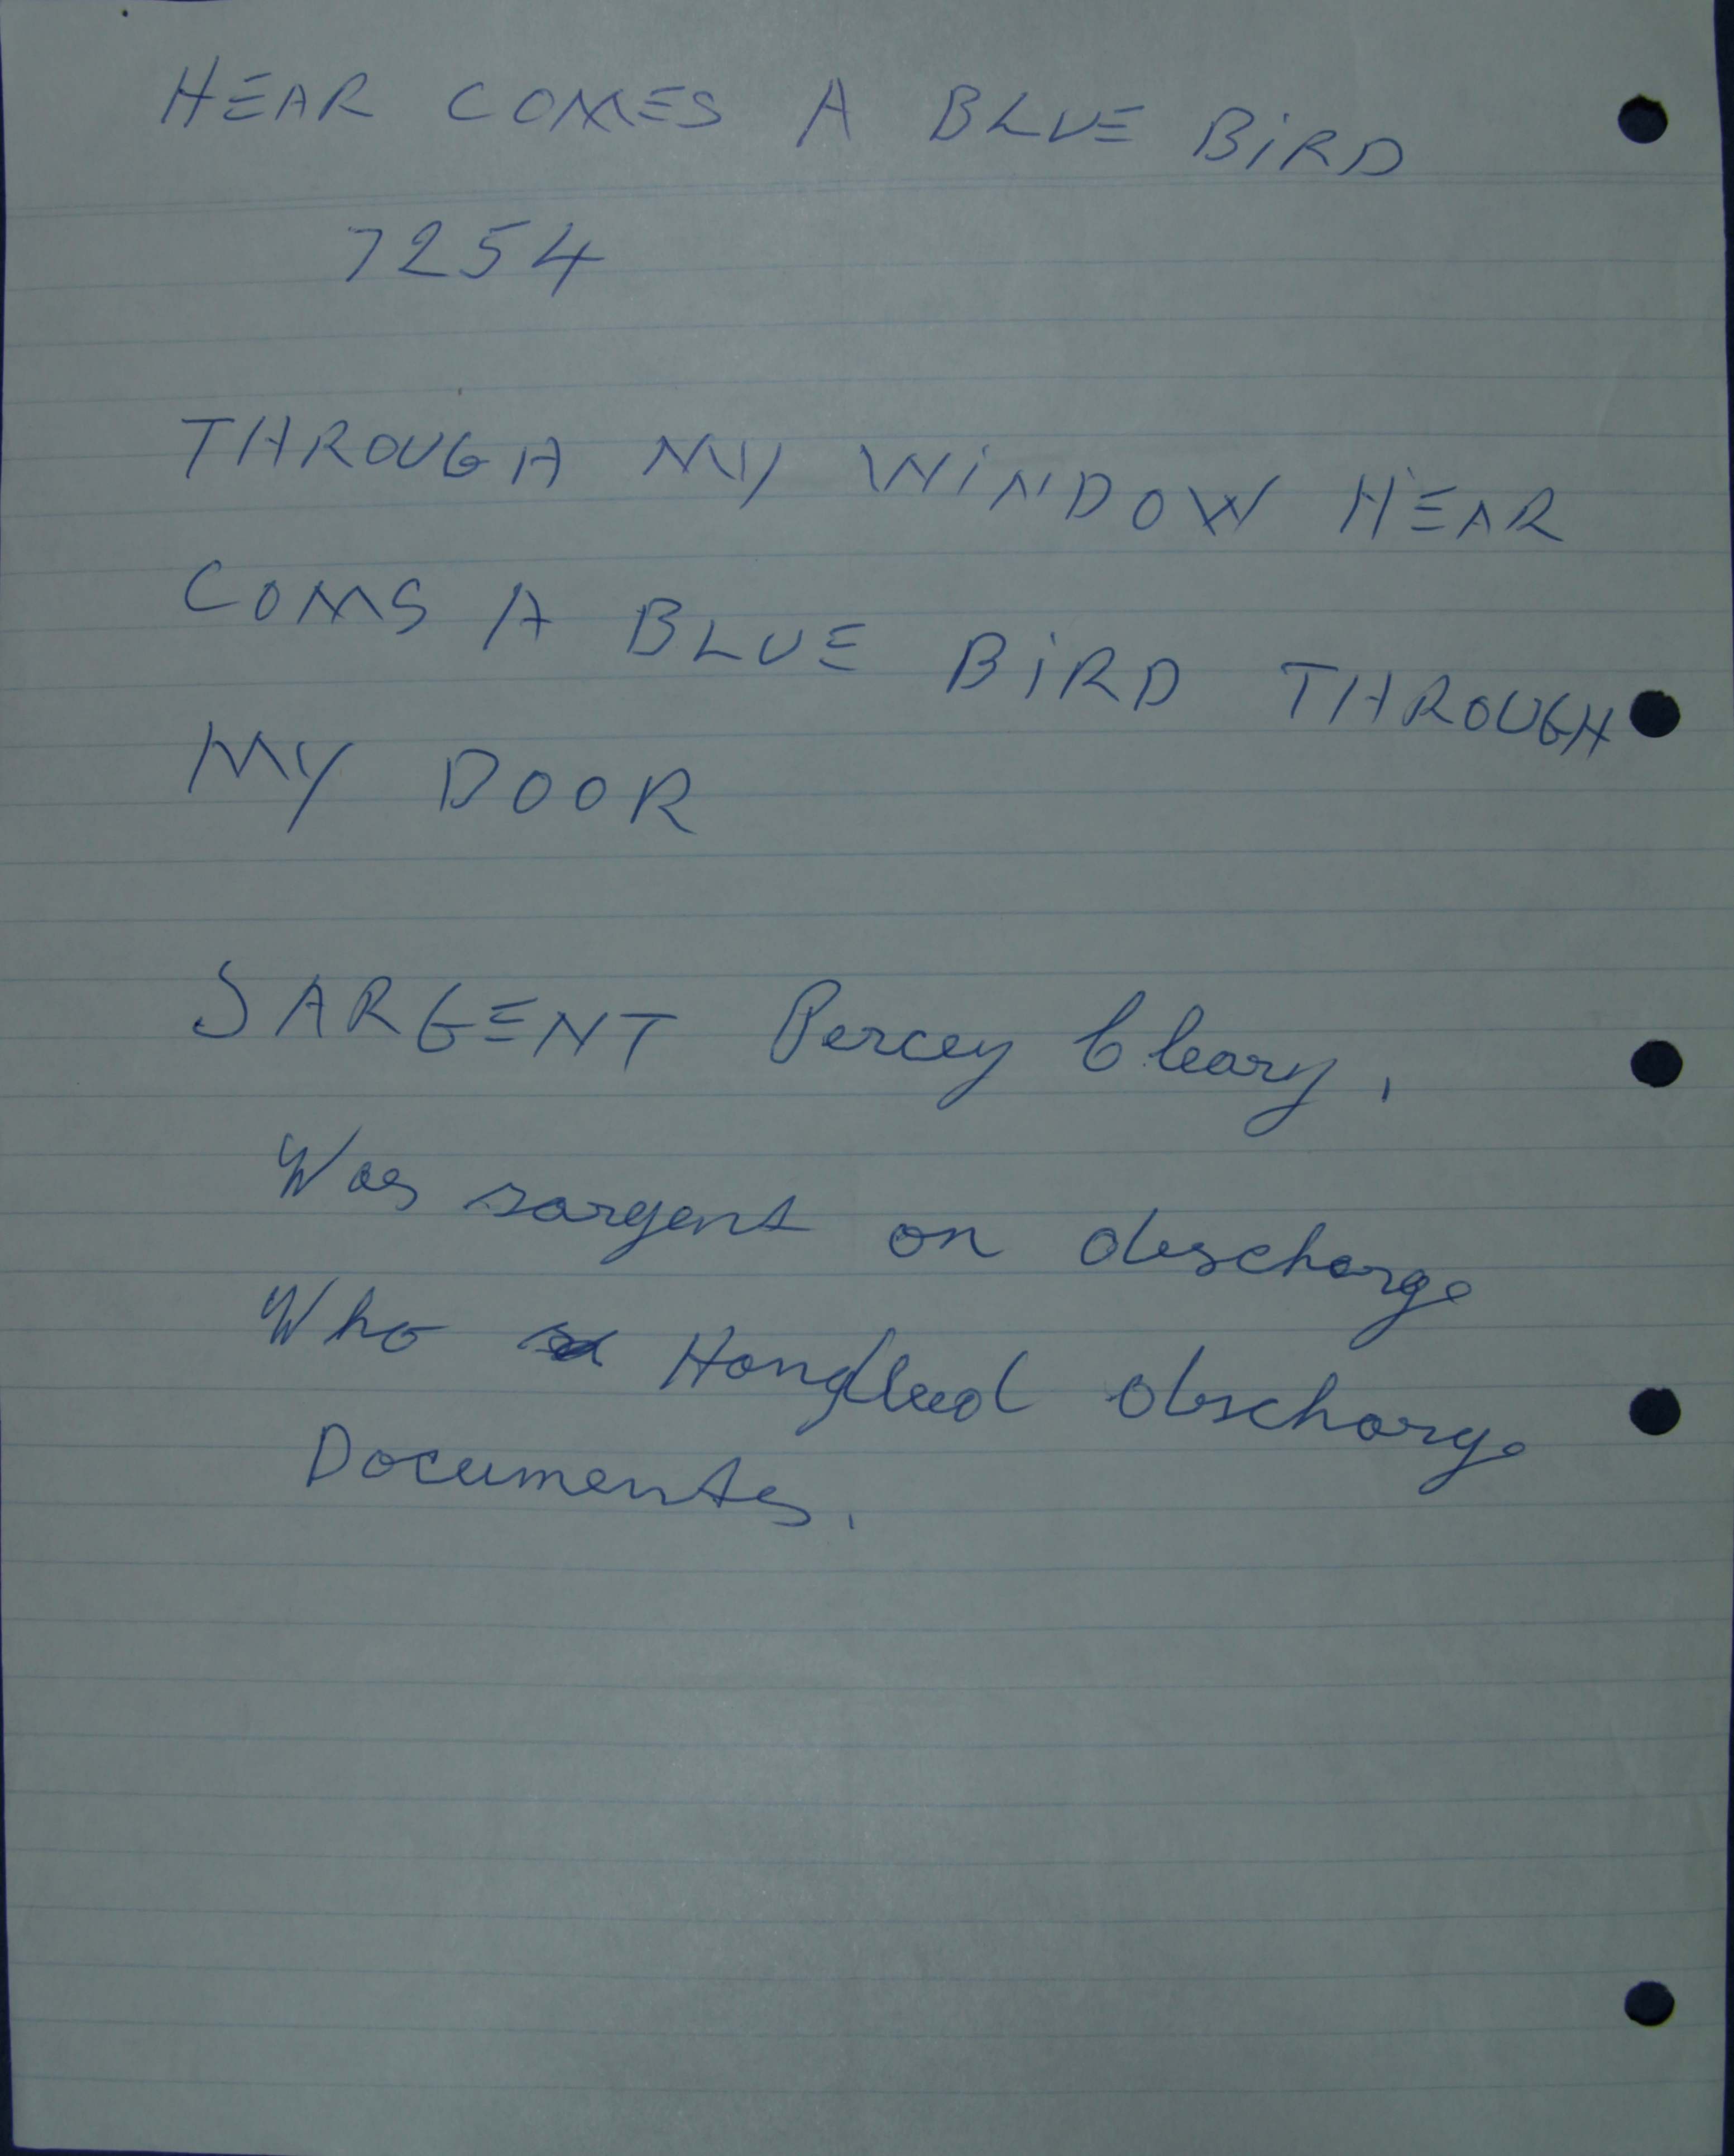 HEAR COMES A BLUE BIRD
7254
THROUGH MY WINDOW HEAR
COMS A BLUE BIRD THROUGH
MY DOOR
SARGENT Percey Cleary,
Was sargent on discharge
Who Handled discharge
Documents.